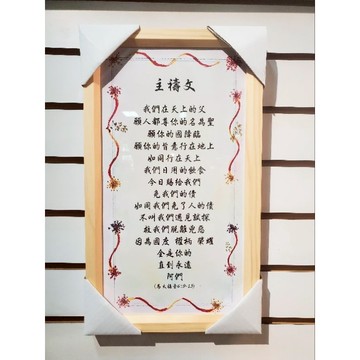 主禱文
我們在天上的父
願人都尊你的名為聖
願你的國降臨
願你的旨意行在地上
如同行在天上
我們日用的飲食
今日賜給我們
免我們的債
如同我們免了人的債
不叫我們遇見試探
救我們脫離兇惡
因為國度 權柄 榮耀
全是你的
直到永遠
阿們